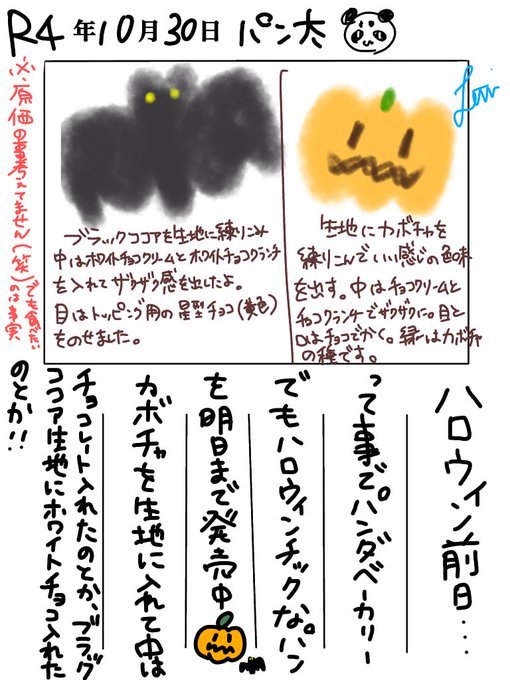 R4年10月30日 パン犬
ブラックココアを生地に練りこみ
中はホワイトチョコクリームとホワイトチョコクランチ
を入れてザクザク感を出したよ。
目はトッピング用の星型チョコ(黄色)
をのせました。
生地にカボチャを
練りこんでいい感じの色味
を出す。中はチョコクリームと
チョコクランチでザクザクに。目と
口はチョコでかく。緑はカボチャ
の種です。
※原価の事考えてません(笑)のは事実
でも食べたい
ハロウィン前日…
って事で。パンダベーカリー
でもハロウィンチックなパン
を明日まで発売中
カボチャを生地に入れて中は
チョコレート入れたのとか、ブラック
ココア生地にホワイトチョコ入れた
のとか!!